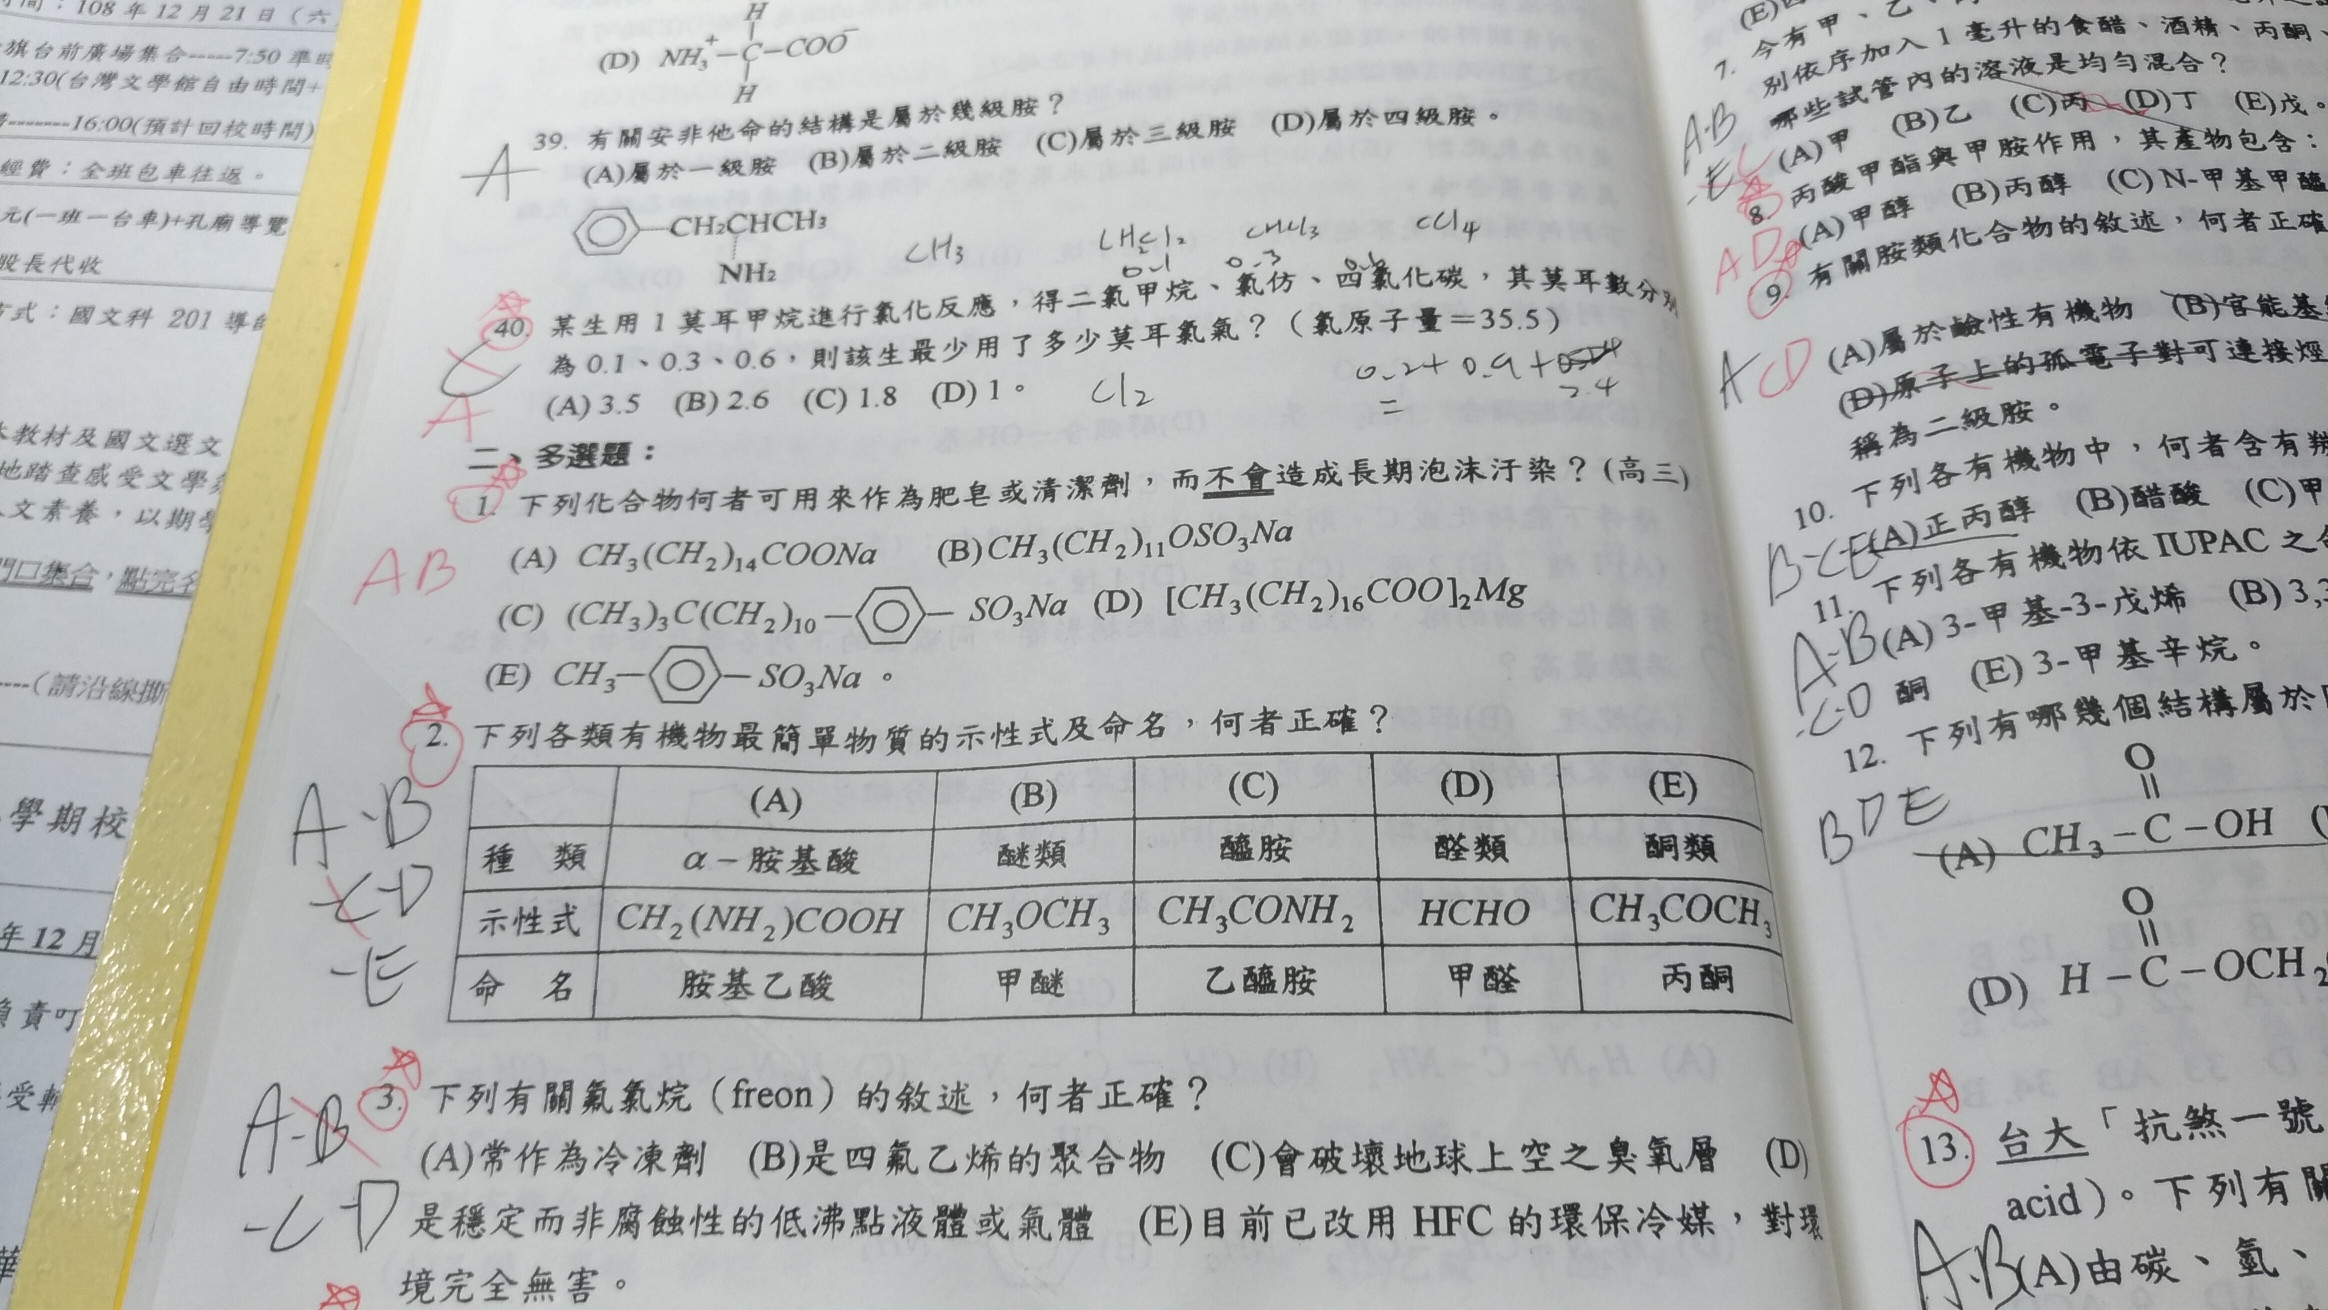 時間：108年12月21日（六
旗台前廣場集合-----7:50 準時
12:30(台灣文學館自由時間+
-------16:00(預計回校時間)
經費：全班包車往返。
元(一班一台車)+孔廟導覽
股長代收
方式：國文科 201 導師
教材及國文選文
地踏查感受文學
文素養，以期學
門口集合，點完名
----（請沿線撕
學期校
年12月
負責叮
(D) NH₃⁺—C—COO⁻
H
H
39. 有關安非他命的結構是屬於幾級胺？
(A)屬於一級胺 (B)屬於二級胺 (C)屬於三級胺 (D)屬於四級胺。
A
CH₂CHCH₃
NH₂
CH₃ CHCl₃ CCl₄
0.1 0.3
40. 某生用 1 莫耳甲烷進行氯化反應，得二氯甲烷、氯仿、四氯化碳，其莫耳數分別
為 0.1、0.3、0.6，則該生最少用了多少莫耳氯氣？（氯原子量＝35.5）
(A) 3.5 (B) 2.6 (C) 1.8 (D) 1。
A
Cl₂
0.2+0.9+
2.4
=
二、多選題：
1. 下列化合物何者可用來作為肥皂或清潔劑，而不會造成長期泡沫汙染？(高三)
AB
(A) CH₃(CH₂)₁₄COONa (B)CH₃(CH₂)₁₁OSO₃Na
(C) (CH₃)₃C(CH₂)₁₀— —SO₃Na (D) [CH₃(CH₂)₁₆COO]₂Mg
(E) CH₃— —SO₃Na。
2. 下列各類有機物最簡單物質的示性式及命名，何者正確？
A、B
C D
E
(A) (B) (C) (D) (E)
種 類 α－胺基酸 醚類 醯胺 醛類 酮類
示性式 CH₂(NH₂)COOH CH₃OCH₃ CH₃CONH₂ HCHO CH₃COCH₃
命 名 胺基乙酸 甲醚 乙醯胺 甲醛 丙酮
3. 下列有關氟氯烷（freon）的敘述，何者正確？
A-B
-C-D
(A)常作為冷凍劑 (B)是四氟乙烯的聚合物 (C)會破壞地球上空之臭氧層 (D)
是穩定而非腐蝕性的低沸點液體或氣體 (E)目前已改用 HFC 的環保冷媒，對環
境完全無害。
7. 今有甲、乙、
別依序加入 1 毫升的食醋、酒精、丙酮、
哪些試管內的溶液是均勻混合？
(A)甲 (B)乙 (C)丙 (D)丁 (E)戊。
A-B
-E C
8. 丙酸甲酯與甲胺作用，其產物包含：
(A)甲醇 (B)丙醇 (C) N-甲基甲醯
AD
9. 有關胺類化合物的敘述，何者正確
(A)屬於鹼性有機物 (B)官能基
(D)原子上的孤電子對可連接烴
稱為二級胺。
A CD
10. 下列各有機物中，何者含有羰
(A)正丙醇 (B)醋酸 (C)甲
B-C-E
11. 下列各有機物依 IUPAC 之命
(A) 3-甲基-3-戊烯 (B) 3,3
酮 (E) 3-甲基辛烷。
A-B
-C-D
12. 下列有哪幾個結構屬於
BDE
O
(A) CH₃－C－OH
O
(D) H－C－OCH₂
13. 台大「抗煞一號
acid）。下列有關
A、B
(A)由碳、氫、